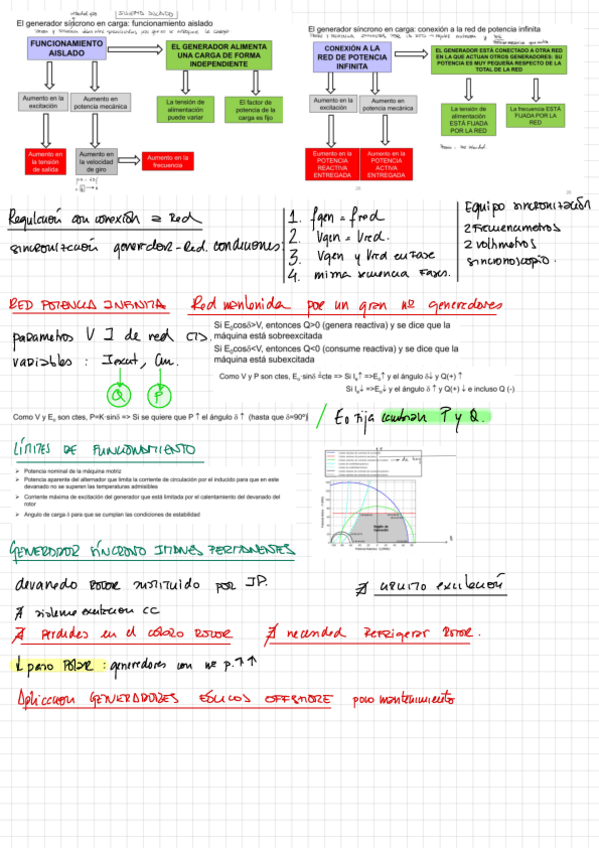 El generador síncrono en carga: funcionamiento aislado
FUNCIONAMIENTO
AISLADO
EL GENERADOR ALIMENTA
UNA CARGA DE FORMA
INDEPENDIENTE
Aumento en la
excitación
Aumento en
potencia mecánica
La tensión de
alimentación
puede variar
El factor de
potencia de la
carga es fijo
Aumento en
la tensión
de salida
Aumento en
la velocidad
de giro
Aumento en la
frecuencia
El generador síncrono en carga: conexión a la red de potencia infinita
CONEXIÓN A LA
RED DE POTENCIA
INFINITA
EL GENERADOR ESTÁ CONECTADO A OTRA RED
EN LA QUE ACTUAN OTROS GENERADORES: SU
POTENCIA ES MUY PEQUEÑA RESPECTO DE LA
TOTAL DE LA RED
Aumento en la
excitación
Aumento en
potencia mecánica
La tensión de
alimentación
ESTÁ FIJADA
POR LA RED
La frecuencia ESTÁ
FIJADA POR LA
RED
Eumento en la
POTENCIA
REACTIVA
ENTREGADA
Aumento en la
POTENCIA
ACTIVA
ENTREGADA
Regulación con conexión a Red
sincronización generador-Red. condiciones:
1. fgen = fred
2. Vgen = Vred.
3. Vgen y Vred en fase
4. misma secuencia fases.
Equipo sincronización
2 frecuenametros
2 voltmetros
sincronoscopio.
RED POTENCIA INFINITA Red mantenida por un gran nº generadores
parametros V I de red cts.
variables : Iexcit, Cm.
Q P
Si E₀cosδ>V, entonces Q>0 (genera reactiva) y se dice que la
máquina está sobreexcitada
Si E₀cosδ<V, entonces Q<0 (consume reactiva) y se dice que la
máquina está subexcitada
Como V y P son ctes, E₀·sinδ =cte => Si Iₑ↑ =>E₀↑ y el ángulo δ↓ y Q(+) ↑
Si Iₑ↓ =>E₀↓ y el ángulo δ ↑ y Q(+) ↓ e incluso Q (-)
Como V y E₀ son ctes, P=K·sinδ => Si se quiere que P ↑ el ángulo δ ↑ (hasta que δ=90º)
/ Eo fija cambian P y Q.
LÍMITES DE FUNCIONAMIENTO
➢ Potencia nominal de la máquina motriz
➢ Potencia aparente del alternador que limita la corriente de circulación por el inducido para que en este
devanado no se superen las temperaturas admisibles
➢ Corriente máxima de excitación del generador que está limitada por el calentamiento del devanado del
rotor
➢ Angulo de carga δ para que se cumplan las condiciones de estabilidad
GENERADOR SÍNCRONO IMANES PERMANENTES
devanado rotor sustituido por IP.
∄ circuito excitación
∄ sistema excitacion CC
∄ Perdidas en el cobre ROTOR
∄ necesidad Refrigerar Rotor.
↓ paso Polar : generadores con nº p.↑↑
Aplicacion GENERADORES EÓLICOS OFFSHORE poco mantenimiento